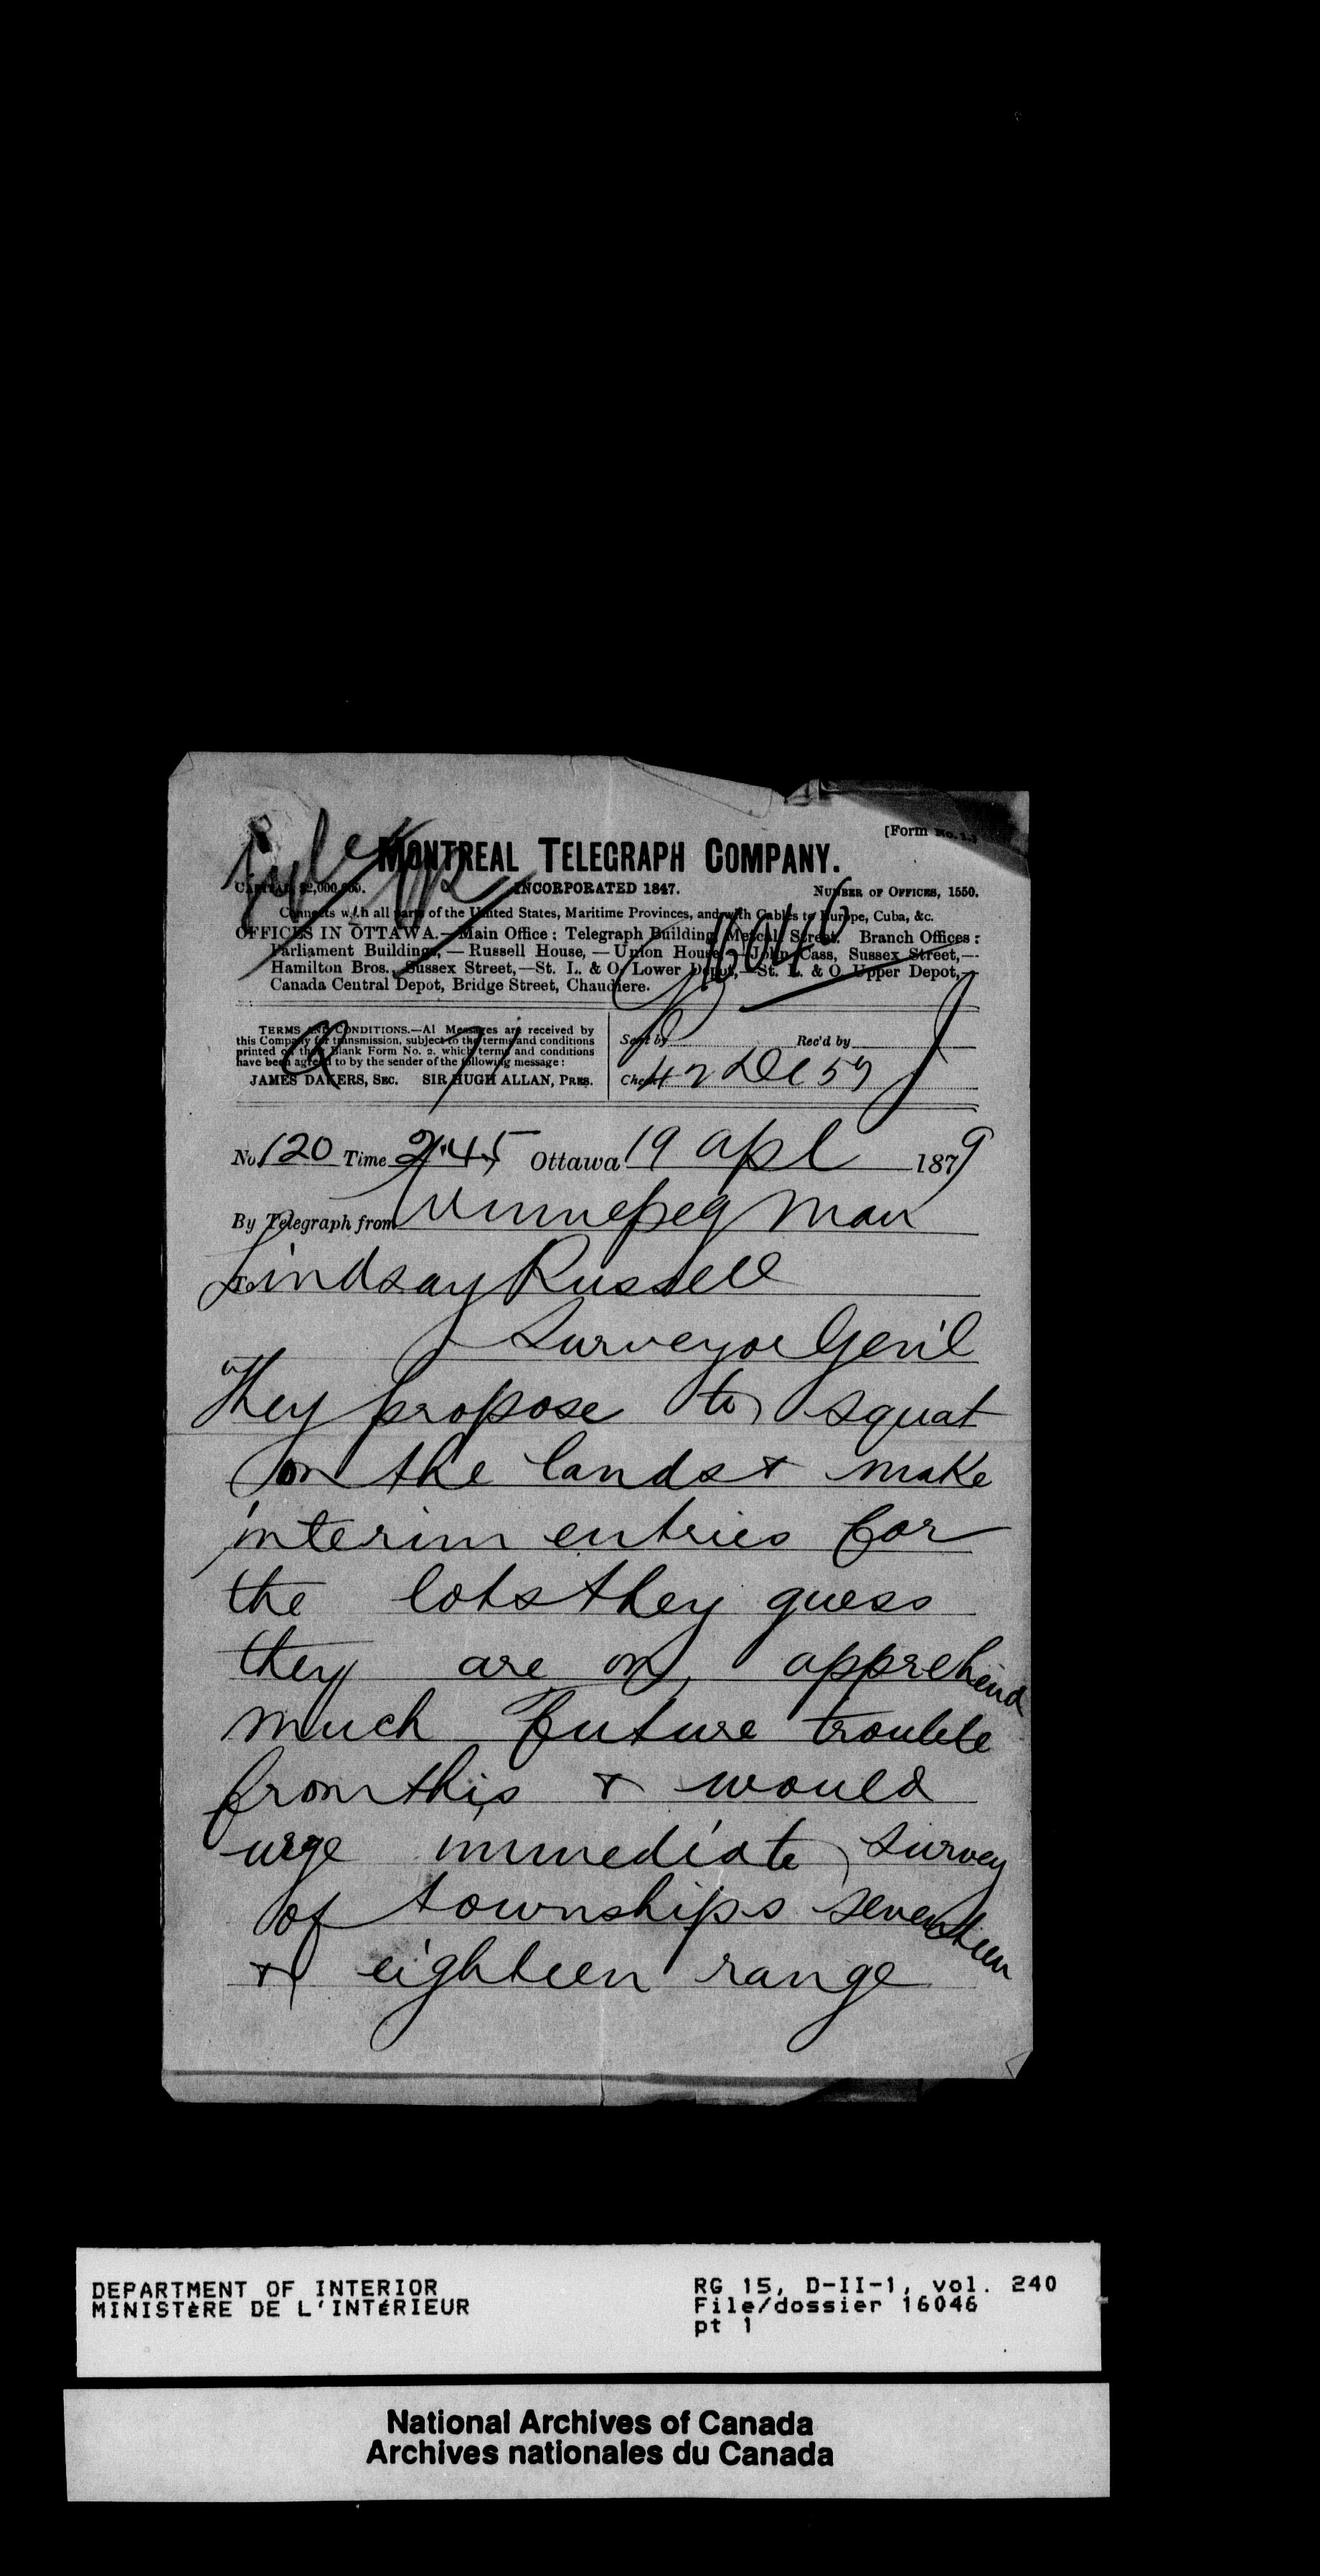 [Form No. 1.]
MONTREAL TELEGRAPH COMPANY.
CAPITAL $2,000,000. INCORPORATED 1847. NUMBER OF OFFICES, 1550.
Connects with all parts of the United States, Maritime Provinces, and with Cables to Europe, Cuba, &c.
OFFICES IN OTTAWA.—Main Office: Telegraph Building, Metcalf Street. Branch Offices:
Parliament Buildings, — Russell House, — Union House, — John Cass, Sussex Street,—
Hamilton Bros., Sussex Street,—St. L. & O. Lower Depot,—St. L. & O. Upper Depot,—
Canada Central Depot, Bridge Street, Chaudiere.
16046
TERMS AND CONDITIONS.—Al Messages are received by
this Company for transmission, subject to the terms and conditions
printed on their Blank Form No. 2. which terms and conditions
have been agreed to by the sender of the following message:
JAMES DAKERS, SEC. SIR HUGH ALLAN, PRES.
Sent by Rec'd by
Check 42 DH 59
No 120 Time 2.45 Ottawa 19 apl 1879
By Telegraph from Winnepeg Man
To Lindsay Russell
Surveyor Gen'l
They propose to squat
on the lands & make
interim entries for
the lots they guess
they are on, apprehend
much future trouble
from this & would
urge immediate survey
of townships seventeen
& eighteen range
DEPARTMENT OF INTERIOR
MINISTèRE DE L'INTéRIEUR
RG 15, D-II-1, vol. 240
File/dossier 16046
pt 1
National Archives of Canada
Archives nationales du Canada